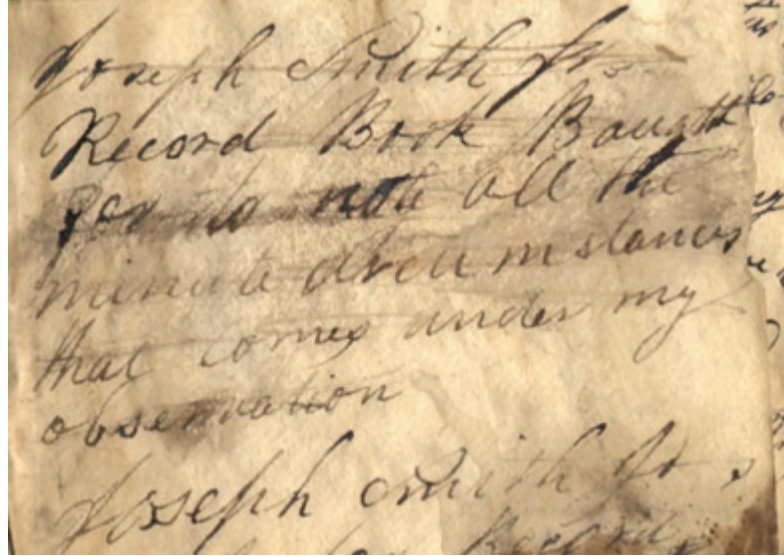 Joseph Smith Jrs
Record Book Baught
for to note all the
minute circumstances
that comes under my
observation
Joseph Smith Jrs
Record